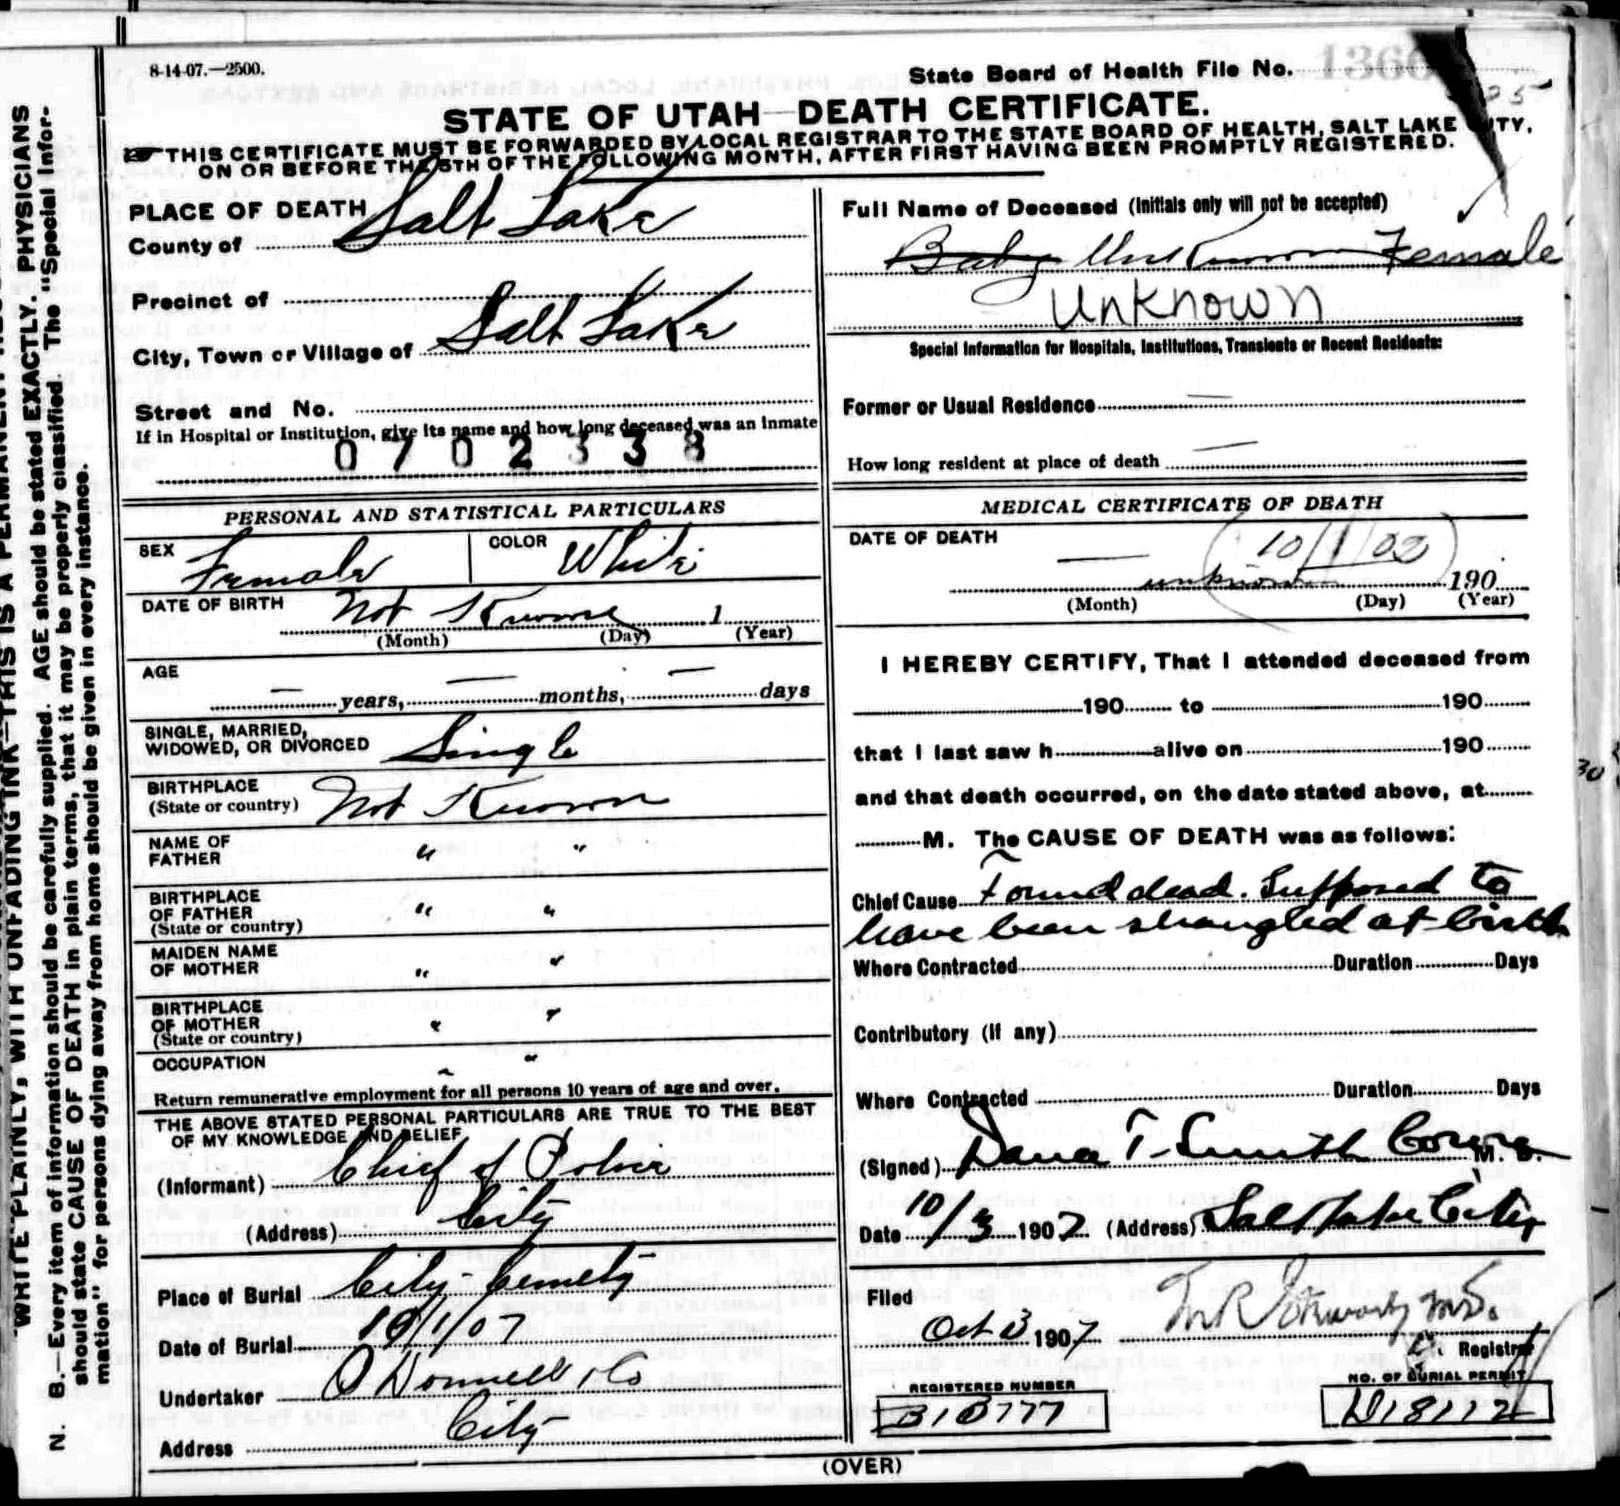 8-14-07.—2500.
State Board of Health File No. 1360
STATE OF UTAH—DEATH CERTIFICATE.
THIS CERTIFICATE MUST BE FORWARDED BY LOCAL REGISTRAR TO THE STATE BOARD OF HEALTH, SALT LAKE CITY,
ON OR BEFORE THE 5TH OF THE FOLLOWING MONTH, AFTER FIRST HAVING BEEN PROMPTLY REGISTERED.
PLACE OF DEATH
County of Salt Lake
Precinct of
City, Town or Village of Salt Lake
Street and No.
If in Hospital or Institution, give its name and how long deceased was an Inmate
0702338
Full Name of Deceased (Initials only will not be accepted)
Baby Unknown Female
Unknown
Special Information for Hospitals, Institutions, Transients or Recent Residents:
Former or Usual Residence —
How long resident at place of death —
PERSONAL AND STATISTICAL PARTICULARS
SEX Female COLOR White
DATE OF BIRTH Not Known 1
(Month) (Day) (Year)
AGE
— years, — months, — days
SINGLE, MARRIED,
WIDOWED, OR DIVORCED Single
BIRTHPLACE
(State or country) Not Known
NAME OF
FATHER " "
BIRTHPLACE
OF FATHER " "
(State or country)
MAIDEN NAME
OF MOTHER " "
BIRTHPLACE
OF MOTHER " "
(State or country)
OCCUPATION " "
Return remunerative employment for all persons 10 years of age and over.
THE ABOVE STATED PERSONAL PARTICULARS ARE TRUE TO THE BEST
OF MY KNOWLEDGE AND BELIEF
(Informant) Chief of Police
(Address) City
Place of Burial City Cemety
Date of Burial 10/1/07
Undertaker O'Donnell & Co
Address City
MEDICAL CERTIFICATE OF DEATH
DATE OF DEATH
— (10/1/02)
unknown 190
(Month) (Day) (Year)
I HEREBY CERTIFY, That I attended deceased from
190 to 190
that I last saw h alive on 190
and that death occurred, on the date stated above, at
M. The CAUSE OF DEATH was as follows:
Chief Cause Found dead. Supposed to
have been strangled at birth
Where Contracted Duration Days
Contributory (if any)
Where Contracted Duration Days
(Signed) Dana T. Smith Corone M. D.
Date 10/3 1907 (Address) Salt Lake City
Filed
Oct 3 1907 M.D.
Registrar
REGISTERED NUMBER
B18777
NO. OF BURIAL PERMIT
D18112
(OVER)
WRITE PLAINLY, WITH UNFADING INK—THIS IS A PERMANENT
N. B.—Every item of information should be carefully supplied. AGE should be stated EXACTLY. PHYSICIANS
should state CAUSE OF DEATH in plain terms, that it may be properly classified. The "Special Infor-
mation" for persons dying away from home should be given in every instance.
30